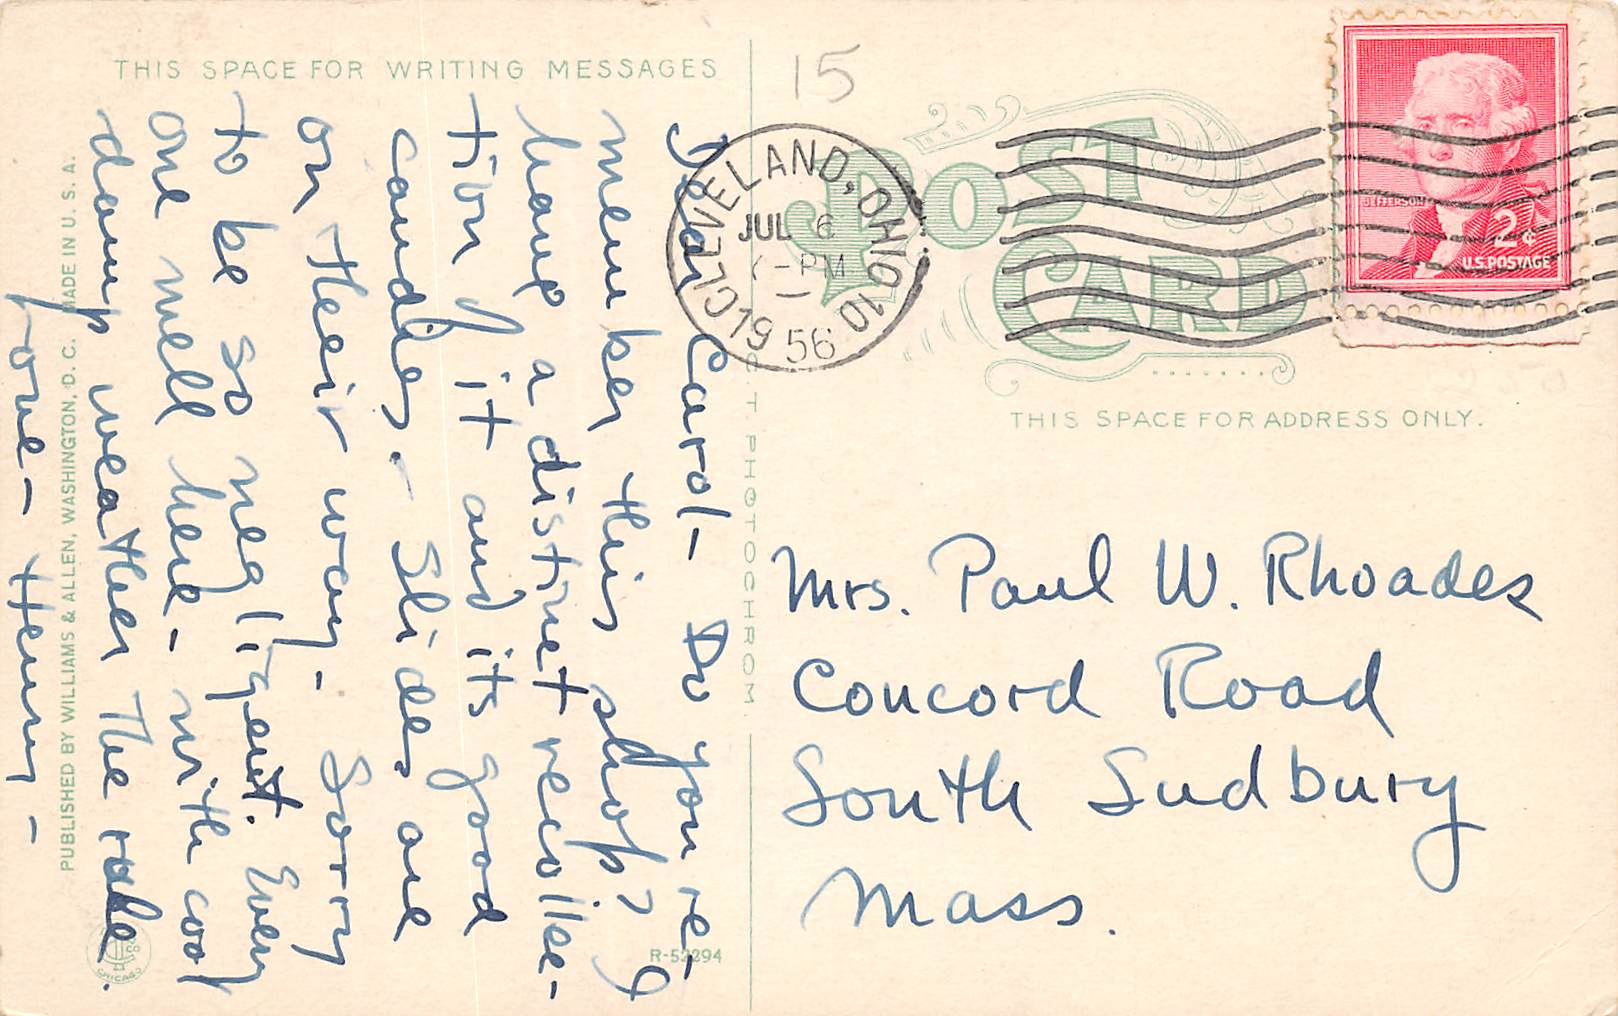 THIS SPACE FOR WRITING MESSAGES
Dear Carol- Do you re-
member this shop? I
have a distinct recollec-
tion of it and its good
candies. Slides are
on their way- Sorry
to be so negligent. Every
one well here- with cool
damp weather the rule.
Love-
PUBLISHED BY WILLIAMS & ALLEN, WASHINGTON, D. C. MADE IN U. S. A.
C. T. PHOTOCHROM
R-52294
CHICAGO
15
CLEVELAND, OHIO
JUL 6
PM
1956
POST CARD
JEFFERSON
2¢
U.S. POSTAGE
THIS SPACE FOR ADDRESS ONLY.
Mrs. Paul W. Rhoades
Concord Road
South Sudbury
Mass.